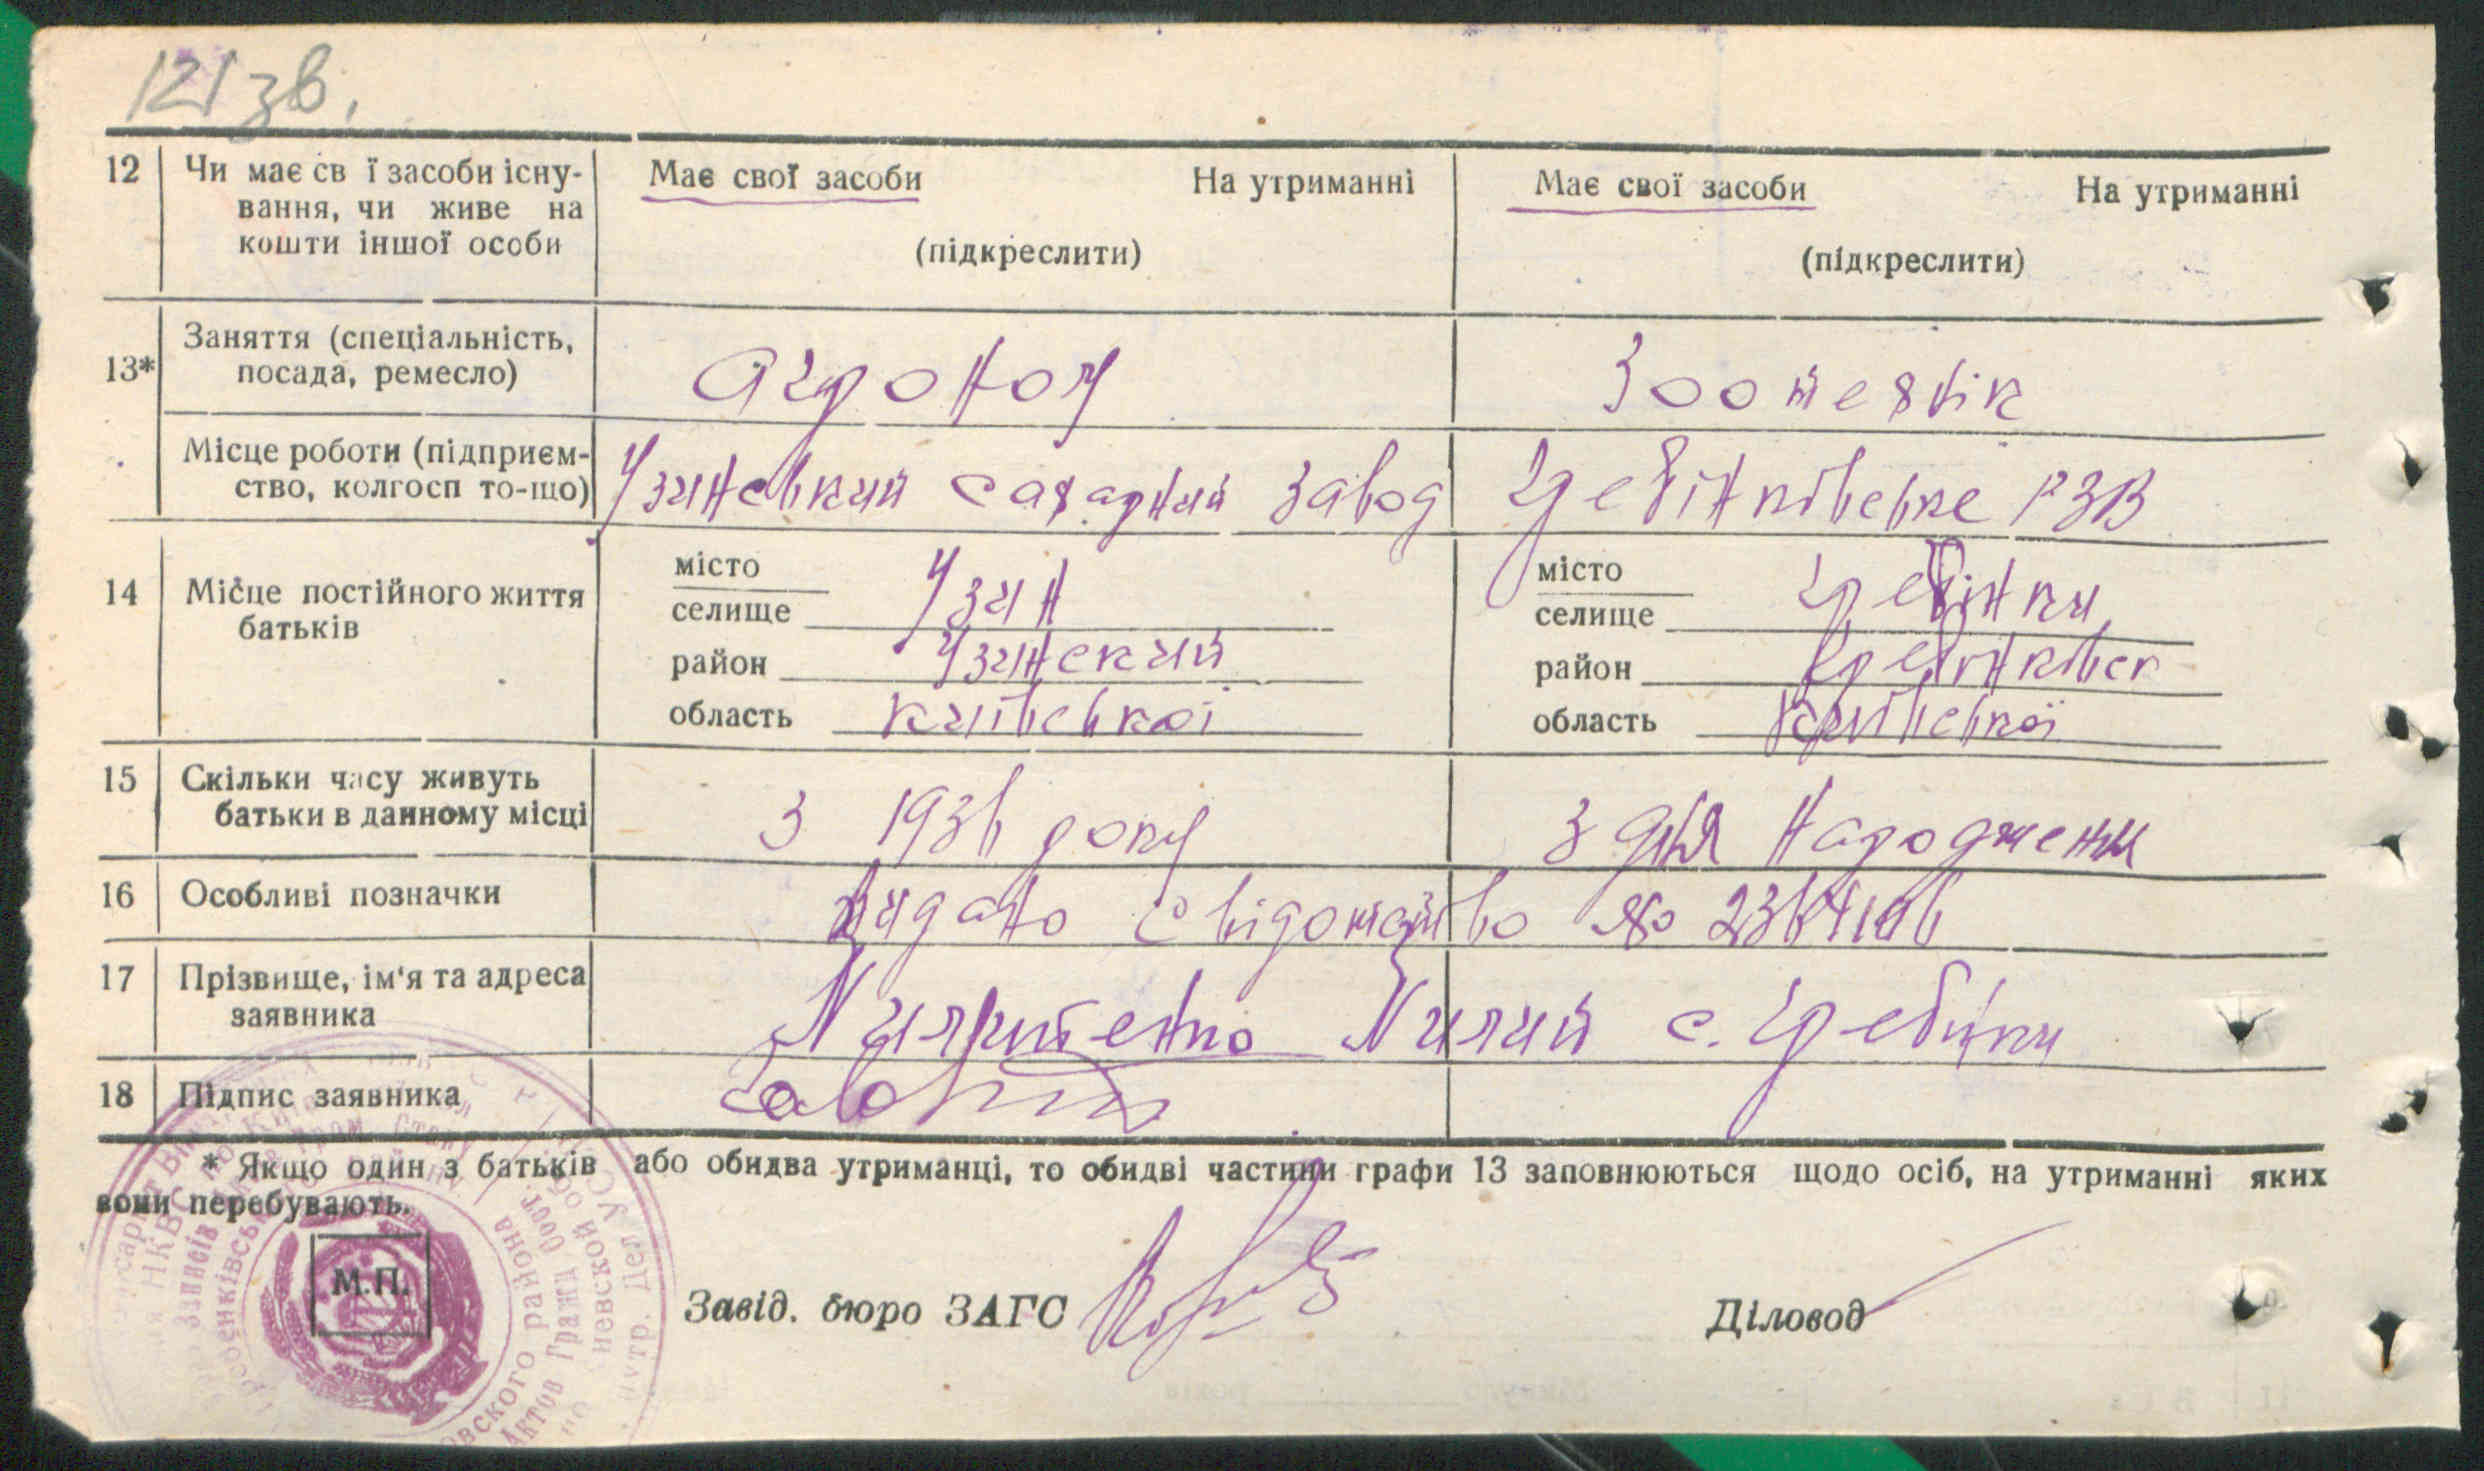 121 зв.
12 Чи має св ї засоби існу- Має свої засоби На утриманні Має свої засоби На утриманні
вання, чи живе на
кошти іншої особи (підкреслити) (підкреслити)
Заняття (спеціальність,
13* посада, ремесло) агроном Зоотехнік
Місце роботи (підприєм-
ство, колгосп то-що) Узинський сахарний завод Гребінківське РЗВ
14 Місце постійного життя місто Узин місто Гребінки
батьків селище селище
район Узинский район Гребінківск
область Київської область Київської
15 Скільки часу живуть
батьки в данному місці З 1936 року З дня народження
16 Особливі позначки Видано свідомство №
17 Прізвище, ім'я та адреса
заявника с. Гребінки
18 Підпис заявника
* Якщо один з батьків або обидва утриманці, то обидві частини графи 13 заповнюються щодо осіб, на утриманні яких
вони перебувають.
М.П.
Завід. бюро ЗАГС Діловод